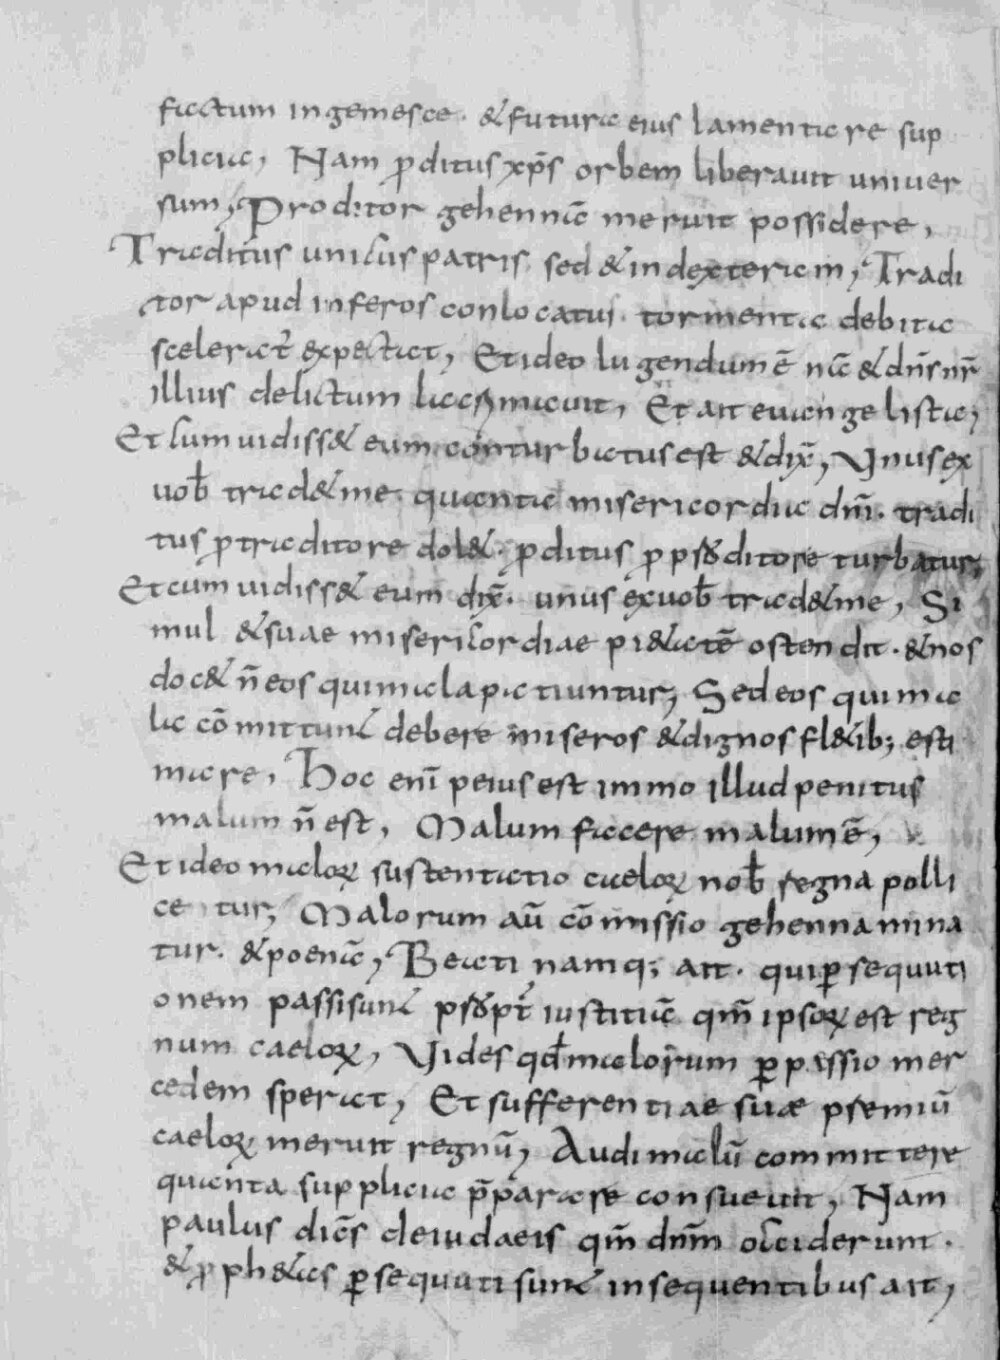 factum ingemesce. & futura eius lamentare sup
plicia, Nam pditus xp̄s orbem liberavit univer
sum, Proditor gehennā meruit possidere,
Traditus unicus patris sed & in dexteram, Tradi
tor apud inferos conlocatus. tormenta debita
scelerat̄ expectat, Et ideo lugendum ē nc̄ & dn̄s nr̄
illius delictum lacrimavit, Et ait evangelista,
Et cum vidiss& eum conturbatus est & dix̄, Unus ex
vob̄ trad& me. quanta misericordia dn̄i. tradi
tus p traditore dol&. pditus p pditore turbatur,
Et cum vidiss& eum dix̄. unus ex vob̄ trad& me, Si
mul & suae misericordiae pi&atē ostendit. & nos
doc& n̄ eos qui mala patiuntur, Sed eos qui ma
la cōmittun& debere miseros & dignos fl&ib; esti
mare, Hoc eni peius est immo illud penitus
malum n̄ est, Malum facere malum ē,
Et ideo maloꝝ sustentatio caeloꝝ nob̄ regna polli
cetur, Malorum au̅ cōmissio gehenna mina
tur. & poenā, Beati namq; ait. qui p̱sequuti
onem passi sunt ppt̄ iustitiā qm̄ ipsoꝝ est reg
num caeloꝝ, Vides qd̄ malorum p̱pessio mer
cedem sperat, Et sufferentiae suæ premiū
caeloꝝ meruit regnū, Audi malū committere
quanta supplicia p̄parare consuevit, Nam
paulus dicēs de iudaeis qm̄ dnm̄ occiderunt.
& pph&as p̱sequuti sunt insequentibus ait,